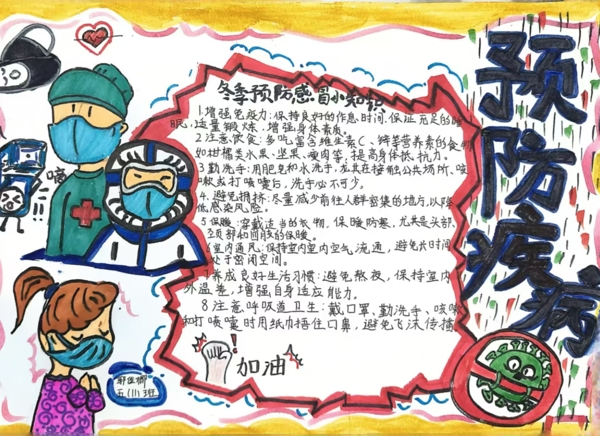 预防疾病
冬季预防感冒小知识
1.增强免疫力:保持良好的作息时间,保证充足的睡
眠,适量锻炼,增强身体素质。
2.注意饮食:多吃富含维生素C、锌等营养素的食物
如柑橘类水果、坚果、瘦肉等,提高身体抵抗力。
3.勤洗手:用肥皂和水洗手,尤其在接触公共场所、咳
嗽或打喷嚏后,洗手必不可少。
4.避免拥挤:尽量减少前往人群密集的地方,以降
低感染风险。
5.保暖:穿戴适当的衣物,保暖防寒,尤其是头部、
颈部和四肢的保暖。
6.室内通风:保持室内空气流通,避免长时间
处于密闭空间。
7.养成良好生活习惯:避免熬夜,保持室内
外温差,增强自身适应能力。
8.注意呼吸道卫生:戴口罩、勤洗手、咳嗽
和打喷嚏时用纸巾捂住口鼻,避免飞沫传播
加油
五(1)班